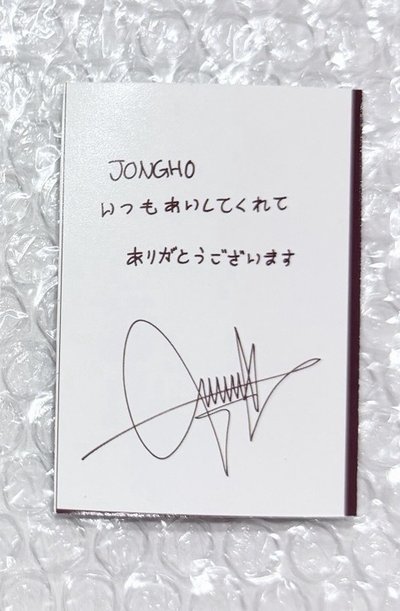 JONGHO
いつもあいしてくれて
ありがとうございます